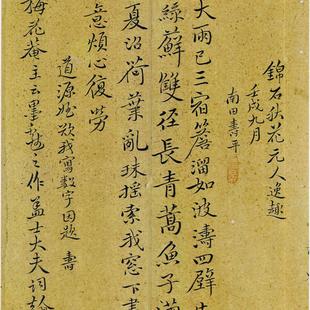 錦石秋花元人逸趣
壬戌九月
南田壽平
大雨已三宿簷溜如波濤四壁生
綠蘚雙徑長青蒿魚子滿
夏沼荷葉亂珠搖索我窓下書
意煩心復勞
道源姪欲我寫數字因題 書
梅花菴主云墨之作蓋士大夫詞翰